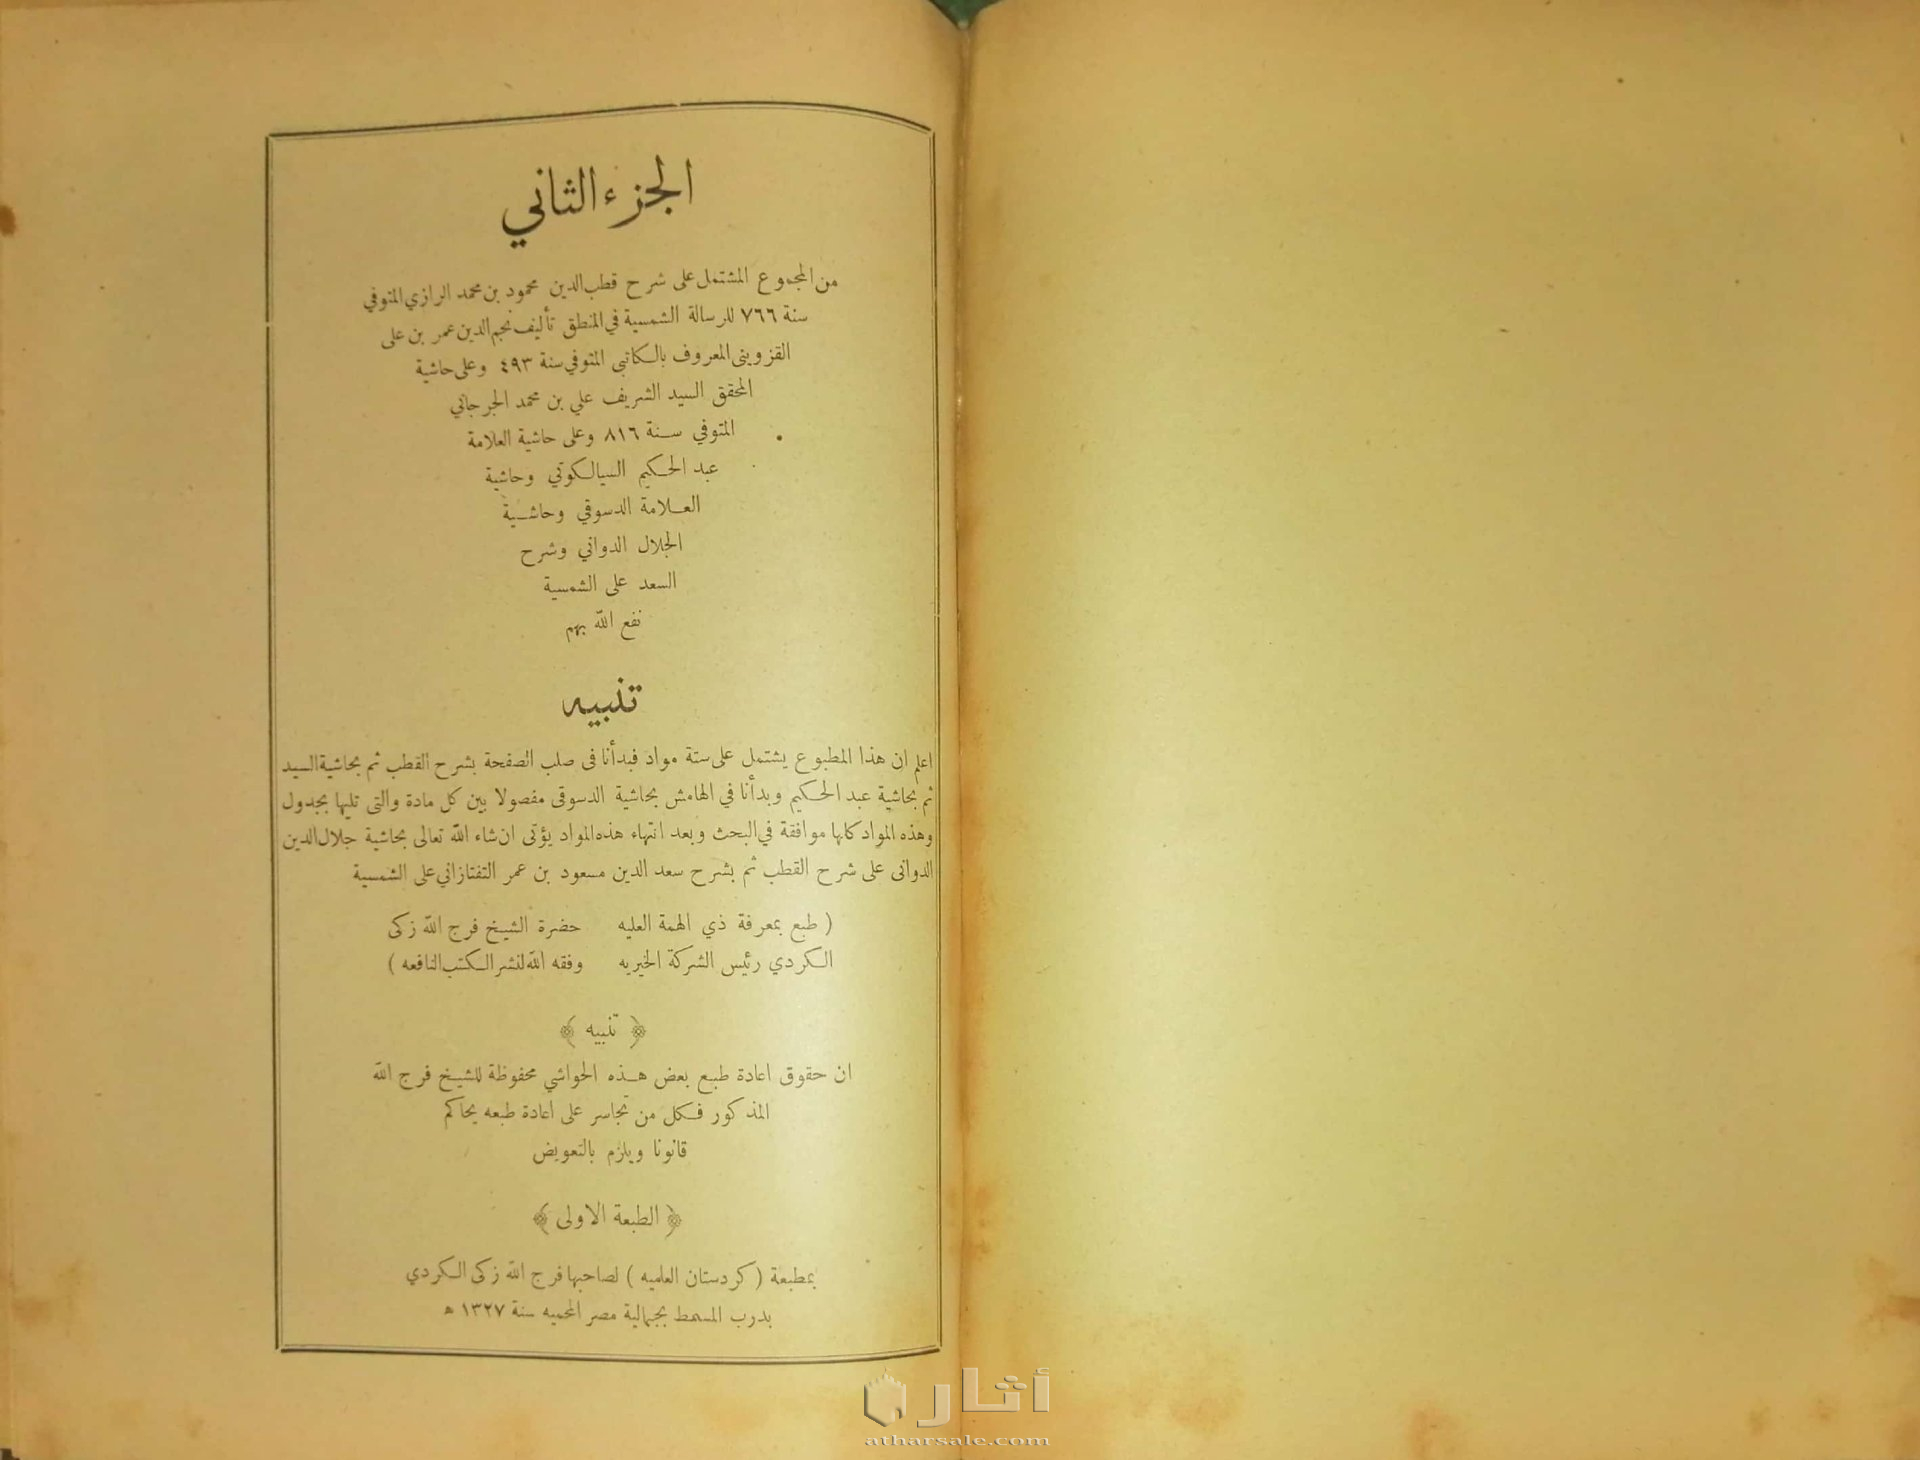 الجزء الثاني
من المجموع المشتمل على شرح قطب الدين محمود بن محمد الرازي المتوفي
سنة ٧٦٦ للرسالة الشمسية في المنطق تأليف نجم الدين عمر بن على
القزوينى المعروف بالكاتبى المتوفي سنة ٤٩٣ وعلى حاشية
المحقق السيد الشريف علي بن محمد الجرجاني
المتوفي سنة ٨١٦ وعلى حاشية العلامة
عبد الحكيم السيالكوتي وحاشية
العلامة الدسوقي وحاشية
الجلال الدواني وشرح
السعد على الشمسية
نفع الله بهم
تنبيه
اعلم ان هذا المطبوع يشتمل على ستة مواد فبدأنا فى صلب الصفحة بشرح القطب ثم بحاشية السيد
ثم بحاشية عبد الحكيم وبدأنا في الهامش بحاشية الدسوقى مفصولا بين كل مادة والتى تليها بجدول
وهذه المواد كلها موافقة في البحث وبعد انتهاء هذه المواد يؤتى ان شاء الله تعالى بحاشية جلال الدين
الدوانى على شرح القطب ثم بشرح سعد الدين مسعود بن عمر التفتازاني على الشمسية
( طبع بمعرفة ذي الهمة العليه حضرة الشيخ فرج الله زكى
الكردي رئيس الشركة الخيريه وفقه الله لنشر الكتب النافعه )
﴿ تنبيه ﴾
ان حقوق اعادة طبع بعض هذه الحواشي محفوظة للشيخ فرج الله
المذكور فكل من تجاسر على اعادة طبعه يحاكم
قانونا ويلزم بالتعويض
﴿ الطبعة الاولى ﴾
بمطبعة ( كردستان العلميه ) لصاحبها فرج الله زكى الكردي
بدرب المسمط بجمالية مصر المحميه سنة ١٣٢٧ ه
أثار
atharsale.com